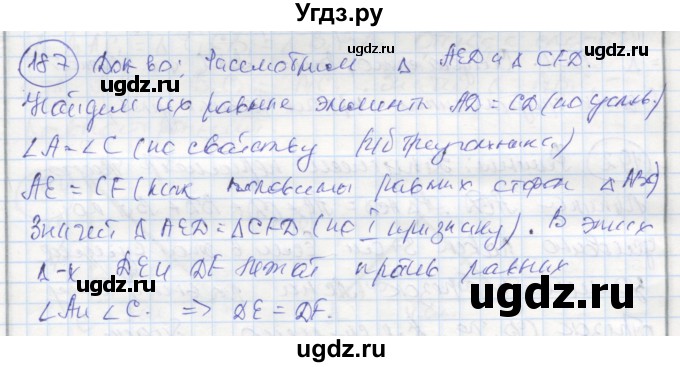 Угдз.ру
187 Док-во: Рассмотрим Δ AED и Δ CFD.
Найдем их равные элементы AD = CD (по услов.)
∠A = ∠C (по свойству р/б треугольника)
AE = CF (как половины равных сторон Δ ABC)
Значит Δ AED = Δ CFD (по I признаку). В этих
Δ-х DE и DF лежат против равных
∠A и ∠C. => DE = DF.
©ugdz.ru
©ugdz.ru
©ugdz.ru
©ugdz.ru
ugdz.ru